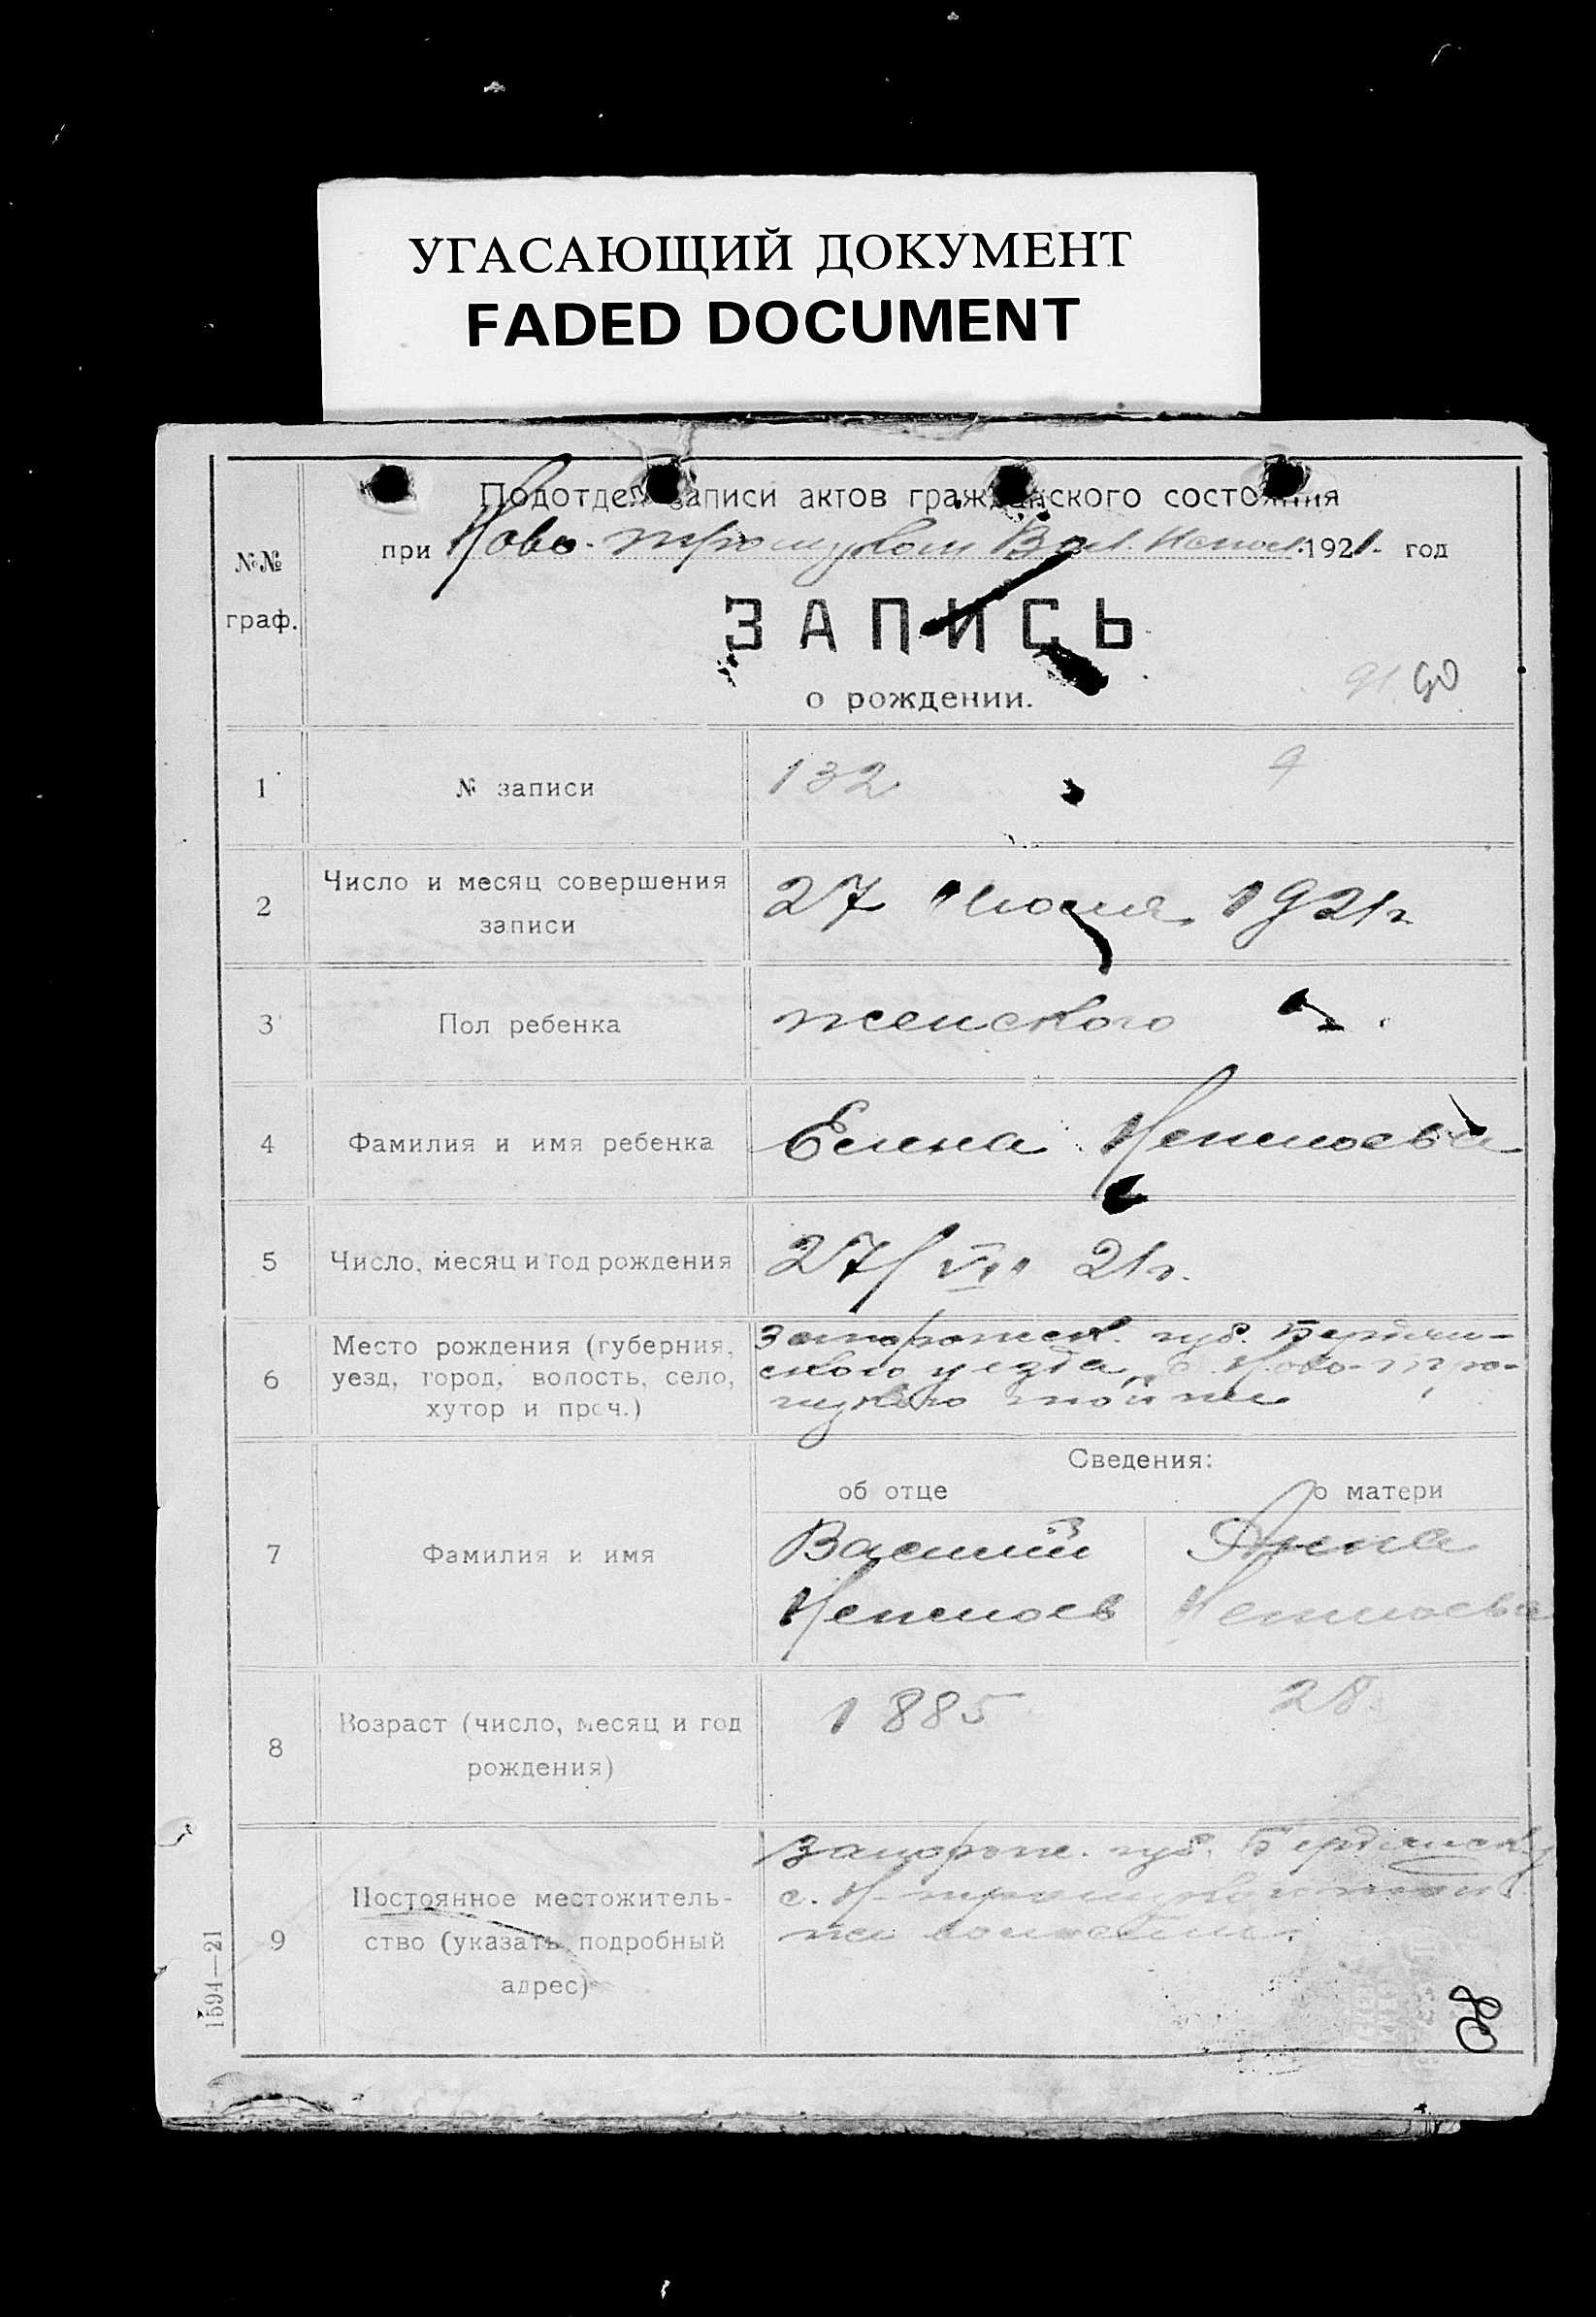 УГАСАЮЩИЙ ДОКУМЕНТ
FADED DOCUMENT
Подотдел записи актов гражданского состояния
№№
граф.
при Ново-троицком Вол. 1921. год
ЗАПИСЬ
о рождении.
91 90
1 № записи 132
2 Число и месяц совершения
записи
27 Июля 1921 г.
3 Пол ребенка женского
4 Фамилия и имя ребенка Елена
5 Число, месяц и год рождения 27/VII 21 г.
6 Место рождения (губерния,
уезд, город, волость, село,
хутор и проч.)
Запорожск. губ. Бердян-
ского уезда, с. Ново-тро-
ицкого той же
Сведения:
об отце о матери
7 Фамилия и имя
Василий Анна
8 Возраст (число, месяц и год
рождения)
1885 28
9 Постоянное местожитель-
ство (указать подробный
адрес)
Запорож. губ. Бердянск. у
с. Н-троицкого той
же волости.
1594—21